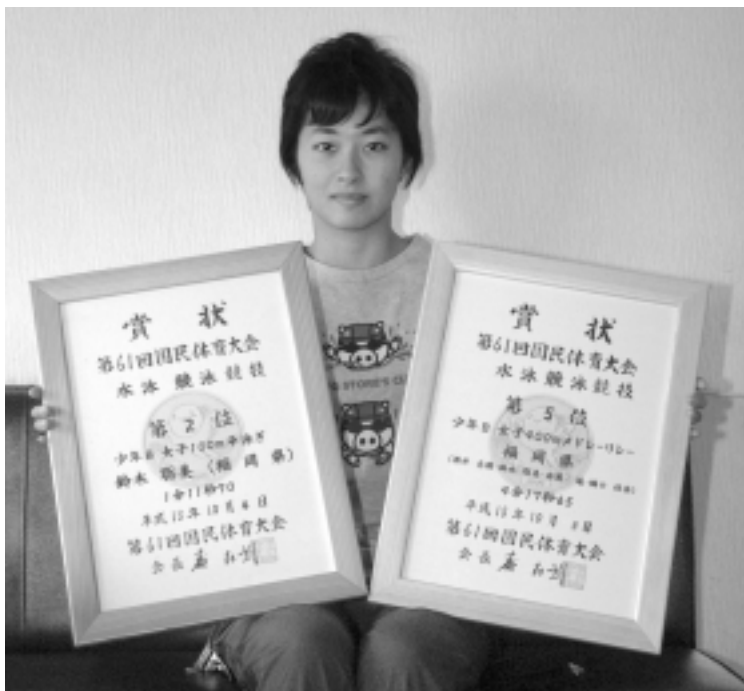 賞状
第61回国民体育大会
水泳競泳競技
第2位
少年B 女子100m平泳ぎ
鈴木 (福岡県)
1分11秒70
平成18年10月 日
第61回国民体育大会
会長
賞状
第61回国民体育大会
水泳競泳競技
第5位
少年B 女子400mメドレーリレー
福岡県
4分17秒65
平成18年10月 日
第61回国民体育大会
会長
STORE'S